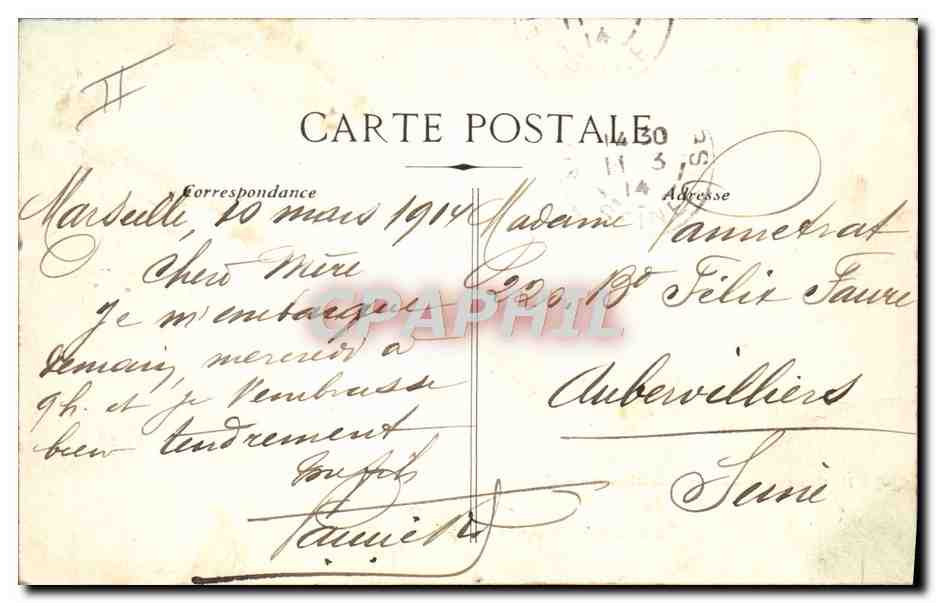 II
14
CARTE POSTALE
14 30
11 3
14
Correspondance
Adresse
Marseille, 10 mars 1914
Chère Mère
Je m'embarque
demain, mercredi à
9h. et je t'embrasse
bien tendrement
Madame Pannetrat
220, Bd Félix Faure
Aubervilliers
Seine
CPAPHIL